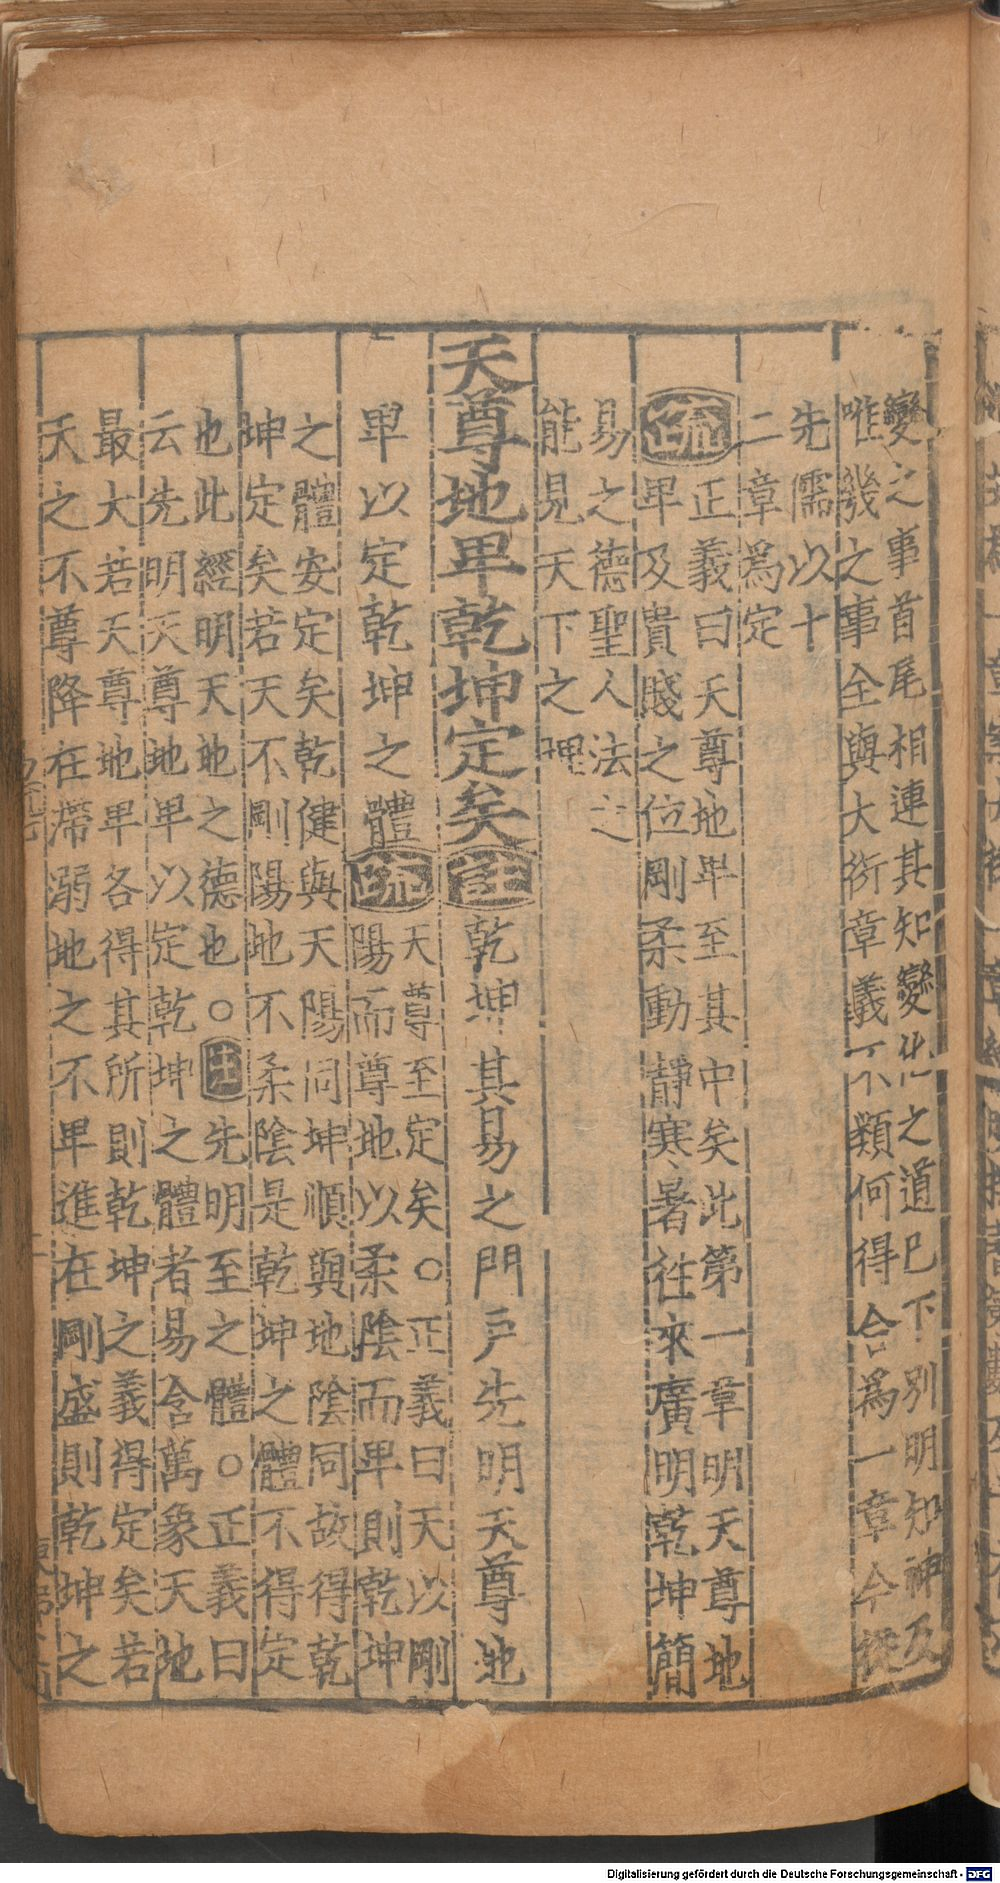 變之事首尾相連其知變化之道已下別明知神及
唯幾之事全與大衍章義不類何得合爲一章今從
先儒以十
二章爲定
疏正義曰天尊地卑至其中矣此第一章明天尊地
卑及貴賤之位剛柔動靜寒暑往來廣明乾坤簡
易之德聖人法之
能見天下之理
天尊地卑乾坤定矣註乾坤其易之門戶先明天尊地
卑以定乾坤之體疏天尊至定矣○正義曰天以剛
陽而尊地以柔陰而卑則乾坤
之體安定矣乾健與天陽同坤順與地陰同故得乾
坤定矣若天不剛陽地不柔陰是乾坤之體不得定
也此經明天地之德也○註先明至之體○正義曰
云先明天尊地卑以定乾坤之體者易含萬象天地
最大若天尊地卑各得其所則乾坤之義得定矣若
天之不尊降在滯溺地之不卑進在剛盛則乾坤之
Digitalisierung gefördert durch die Deutsche Forschungsgemeinschaft - DFG